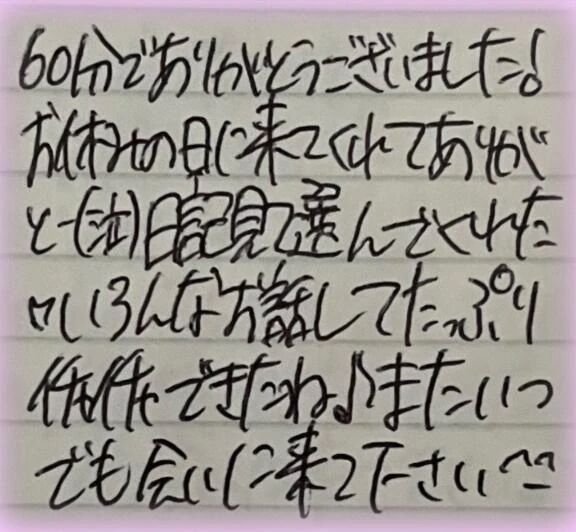 60分でありがとうございました!
お休みの日に来てくれてありが
とー(泣)日記見て選んでくれた
けいろんなお話してたっぷり
できたね♪またいつ
でも会いに来て下さい^^